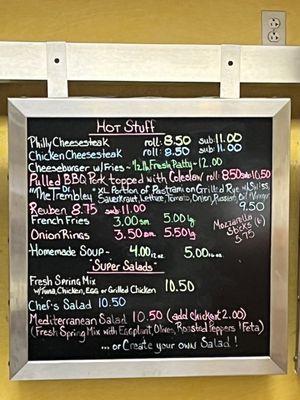 Hot Stuff
Philly Cheesesteak roll: 8.50 sub: 11.00
Chicken Cheesesteak roll: 8.50 sub: 11.00
Cheeseburger w/Fries ~ 1/2 lb Fresh Patty ~ 12.00
Pulled BBQ Pork topped with Coleslaw roll: 8.50 sub 10.50
"The Dr. Trembley" *XL Portion of Pastrami on Grilled Rye with Swiss,
Sauerkraut, Lettuce, Tomato, Onion, Russian, Oil + Vinegar 9.50
Reuben 8.75 sub 11.00
French Fries 3.00 sm 5.00 lg
Onion Rings 3.50 sm 5.50 lg
Mozzarella
Sticks (6)
5.75
Homemade Soup ~ 4.00 5.00
Super Salads
Fresh Spring Mix
w/Tuna, Chicken, Egg or Grilled Chicken 10.50
Chef's Salad 10.50
Mediterranean Salad 10.50 (add chicken 2.00)
(Fresh Spring Mix with Eggplant, Olives, Roasted Peppers + Feta)
... or Create your own Salad!